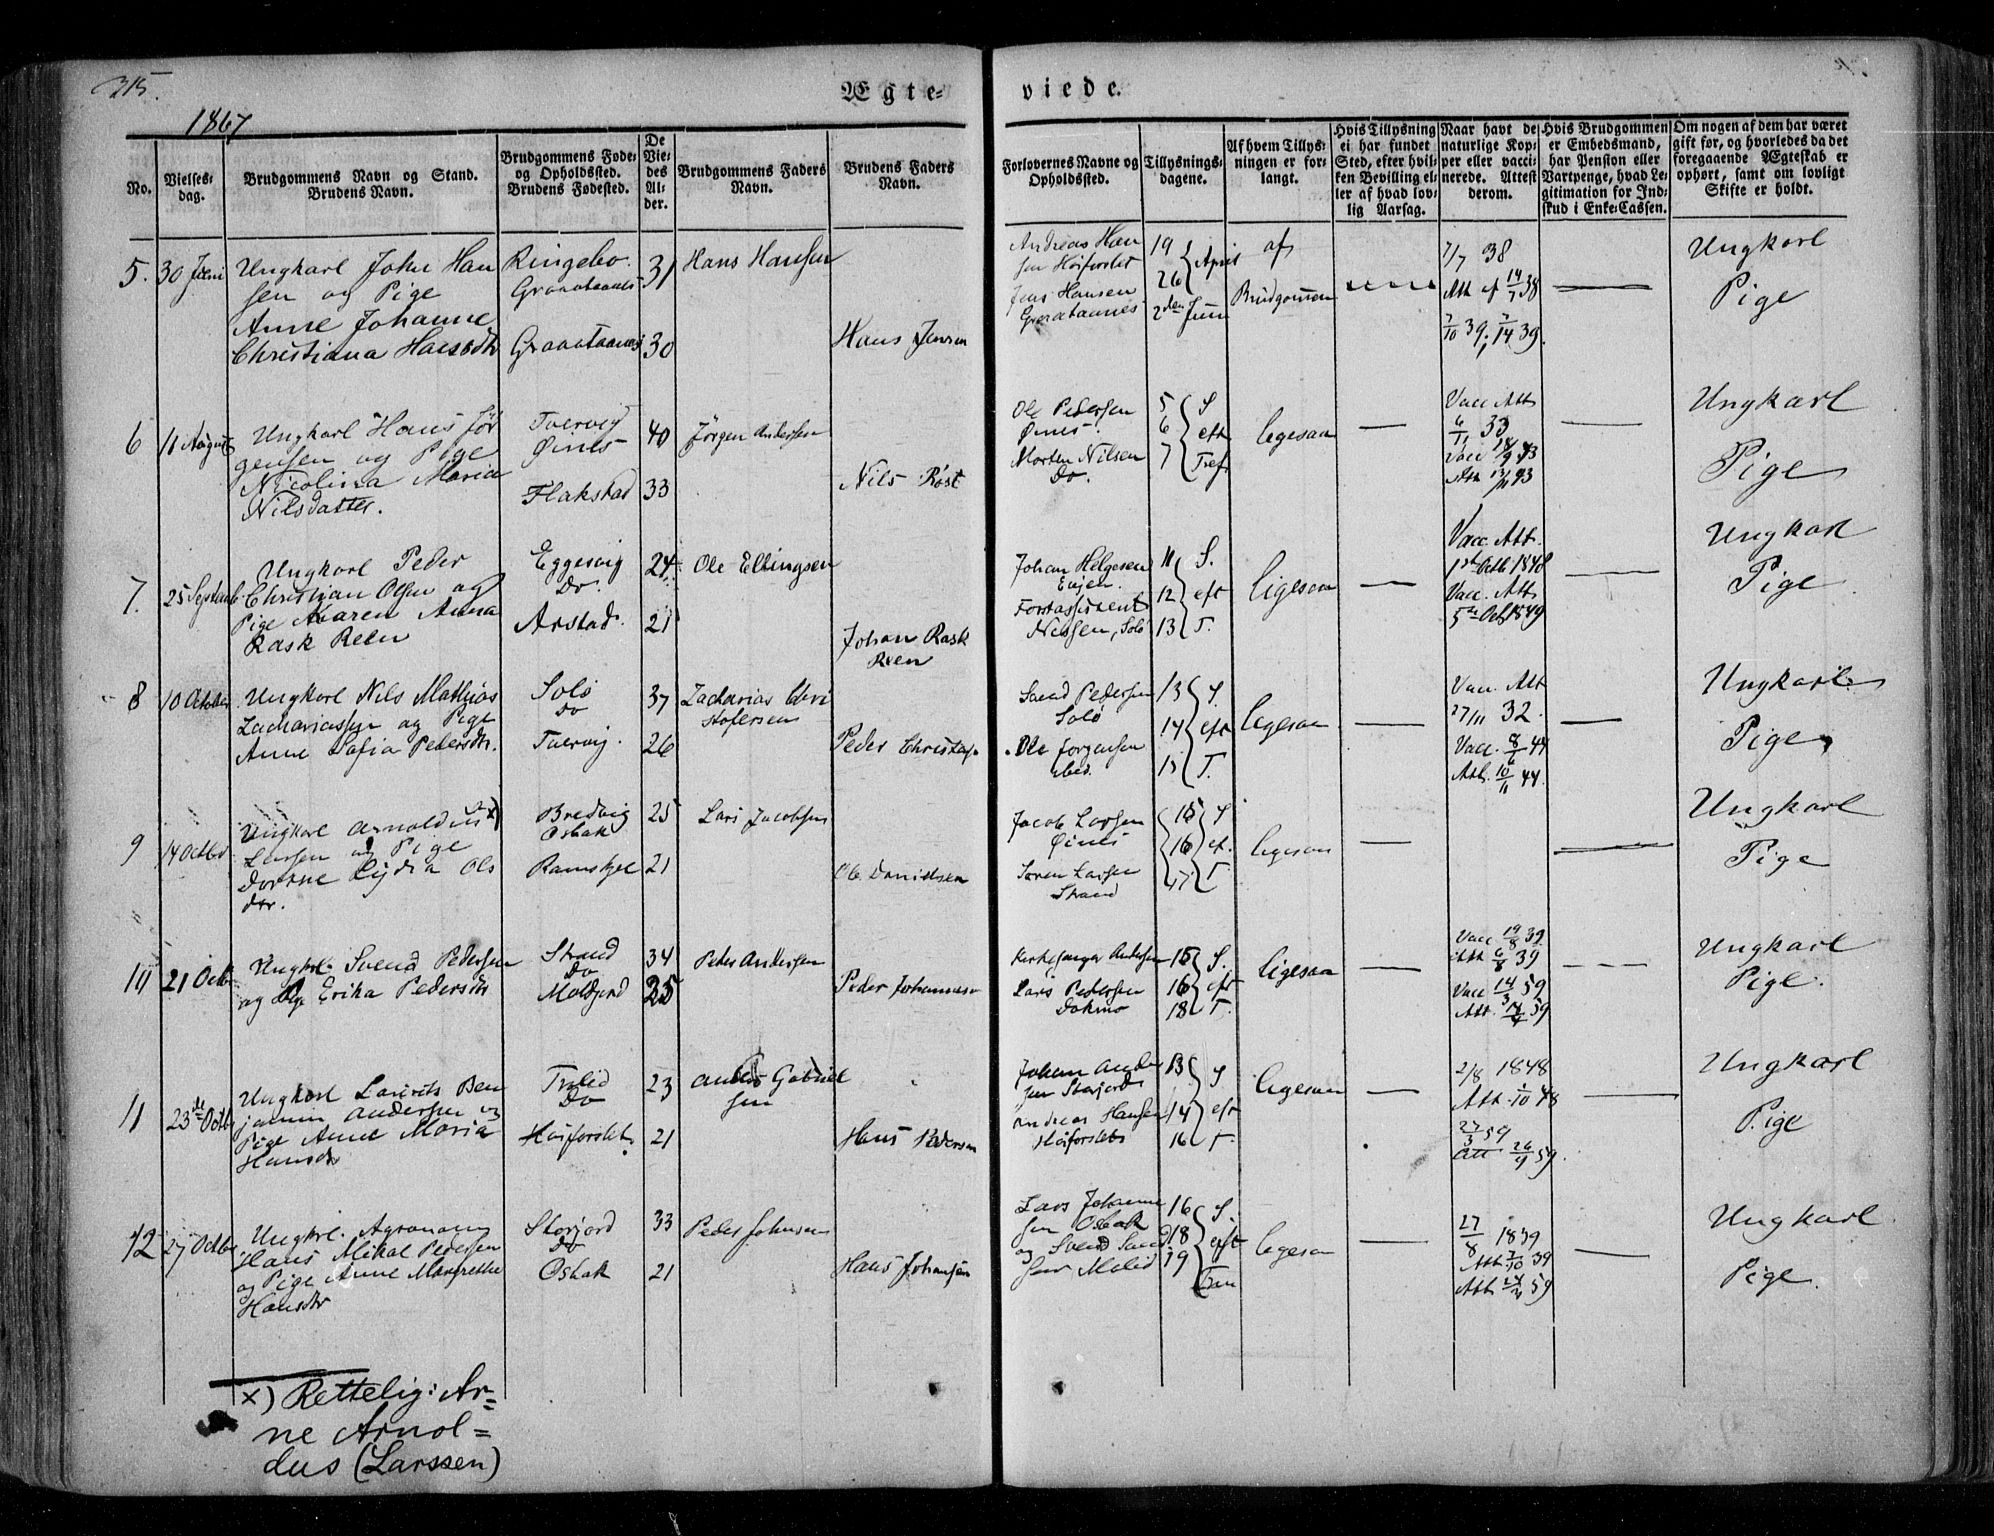 315.
Ægte-
viede.
1867
No.
Vielses-
dag.
Brudgommens Navn og Stand.
Brudens Navn.
Brudgommens Føde-
og Opholdssted.
Brudens Fødested.
De
Vie-
des
Al-
der.
Brudgommens Faders
Navn.
Brudens Faders
Navn.
Forlovernes Navne og
Opholdssted.
Tillysnings-
dagene.
Af hvem Tillys-
ningen er for-
langt.
Hvis Tillysning
ei har fundet
Sted, efter hvil-
ken Bevilling el-
ler af hvad lov-
lig Aarsag.
Naar havt de
naturlige Kop-
per eller vacci-
nerede. Attest
derom.
Hvis Brudgommen
er Embedsmand,
har Pension eller
Vartpenge, hvad Le-
gitimation for Ind-
skud i Enke-Cassen.
Om nogen af dem har været
gift før, og hvorledes da det
foregaaende Ægteskab er
ophørt, samt om lovligt
Skifte er holdt.
5. 30 Juni
Ungkarl John Han
sen og Pige
Anne Johanne
Christiana Hansdtr
Ringebo.
Graataanes
Graataanes
31
30
Hans Hansen
Hans Jensen
Andreas Han
sen Høiforslet
Jens Hansen
Graataanes
19
26 April
2den Juni
af
Brudgommen
7/7 38
Att af 14/7 38
7/10 39. 7/14 39.
Ungkarl
Pige
6 11 August
Ungkarl Hans Jør
gensen og Pige
Nicolina Maria
Nilsdatter.
Tvervig
Øines
Flakstad
40
33
Jørgen Andersen
Nils Røst
Ole Pedersen
Øines.
Morten Nilsen
Do.
5 S
6 eft
7 Tref
ligesaa
Vacc Att
6/11 33
Vacc 18/9 43
Att 13/11 43
Ungkarl
Pige
7. 25 Septemb
Ungkarl Peder
Christian Olsen og
Pige Karen Anna
Rask Reen
Eggesvig
Do.
Arstad.
24
21
Ole Ellingsen
Johan Rask
Reen
Johan Helgesen
Enjen
Forstassistent
Nessen, Solø
11 S.
12 eft
13 T.
ligesaa
Vacc. Att.
1st Octb 1848
Vacc. Att
5te Oct 1849
Ungkarl
Pige
8 10 October
Ungkarl Nils Mathias
Zachariassen og Pige
Anne Sofia Pedersdtr.
Solø
do
Tvervig.
37
26
Zacharias Chri
stofersen
Peder Christof.
Svend Pedersen
Solø
Ole Jørgensen
ibed.
13 S.
14 eft
15 T.
ligesaa
Vacc. Att
27/11 32.
Vacc. 8/6 44
Att. 10/11 44.
Ungkarl
Pige
9 14 Octbr
Ungkarl Arnoldus x)
Larsen og Pige
Dorthe Lydia Ols
dtr.
Bredvig
Osbak
Ramskjel
25
21
Lars Jacobsen
Ole Danielsen
Jacob Larsen
Øines
Søren Larsen
Strand
15 S
16 ef.
17 T
ligesaa
Ungkarl
Pige
10 21 Octbr
Ungkrl. Svend Pedersen
og Pige Erika Pedersdtr
Strand
Do
Moldjord
34
25
Peder Andersen
Peder Johannesen
Kirkesanger Andersen
Lars Pedersen
Dokmo
15 S.
16 eft
18 T.
ligesaa
Vacc 19/8 39
Att 6/8 39
Vacc 14/3 59
Att. 14/4 59
Ungkarl
Pige.
11 23de Octbr
Ungkarl Laurits Ben
jamin Andersen og
Pige Anne Maria
Hansdtr
Trolid
Do
Høiforslet
23
21
Anders Gabriel
sen
Hans Pedersen
Johan Ander
sen Storjord
Andreas Hansen
Høiforslet
13 S
14 eft
16 T
ligesaa
2/8 1848
Att. 1/10 48
27/3 59
Att 26/9 59.
Ungkarl
Pige
12 27 Octbr
Ungkrl. Agronom
Hans Mikal Pedersen
og Pige Anne Margrethe
Hansdtr
Storjord
Do
Osbak
33
21
Peder Johnsen
Hans Johansen
Lars Johanne
sen Osbak
og Svend Svend
sen Molid
16 S.
18 eft
19 Trin
ligesaa
27/8 1839
Att 7/10 39
Att 24/4 59
Ungkarl
Pige.
x) Rettelig: Ar=
ne Arnol=
dus (Larssen)